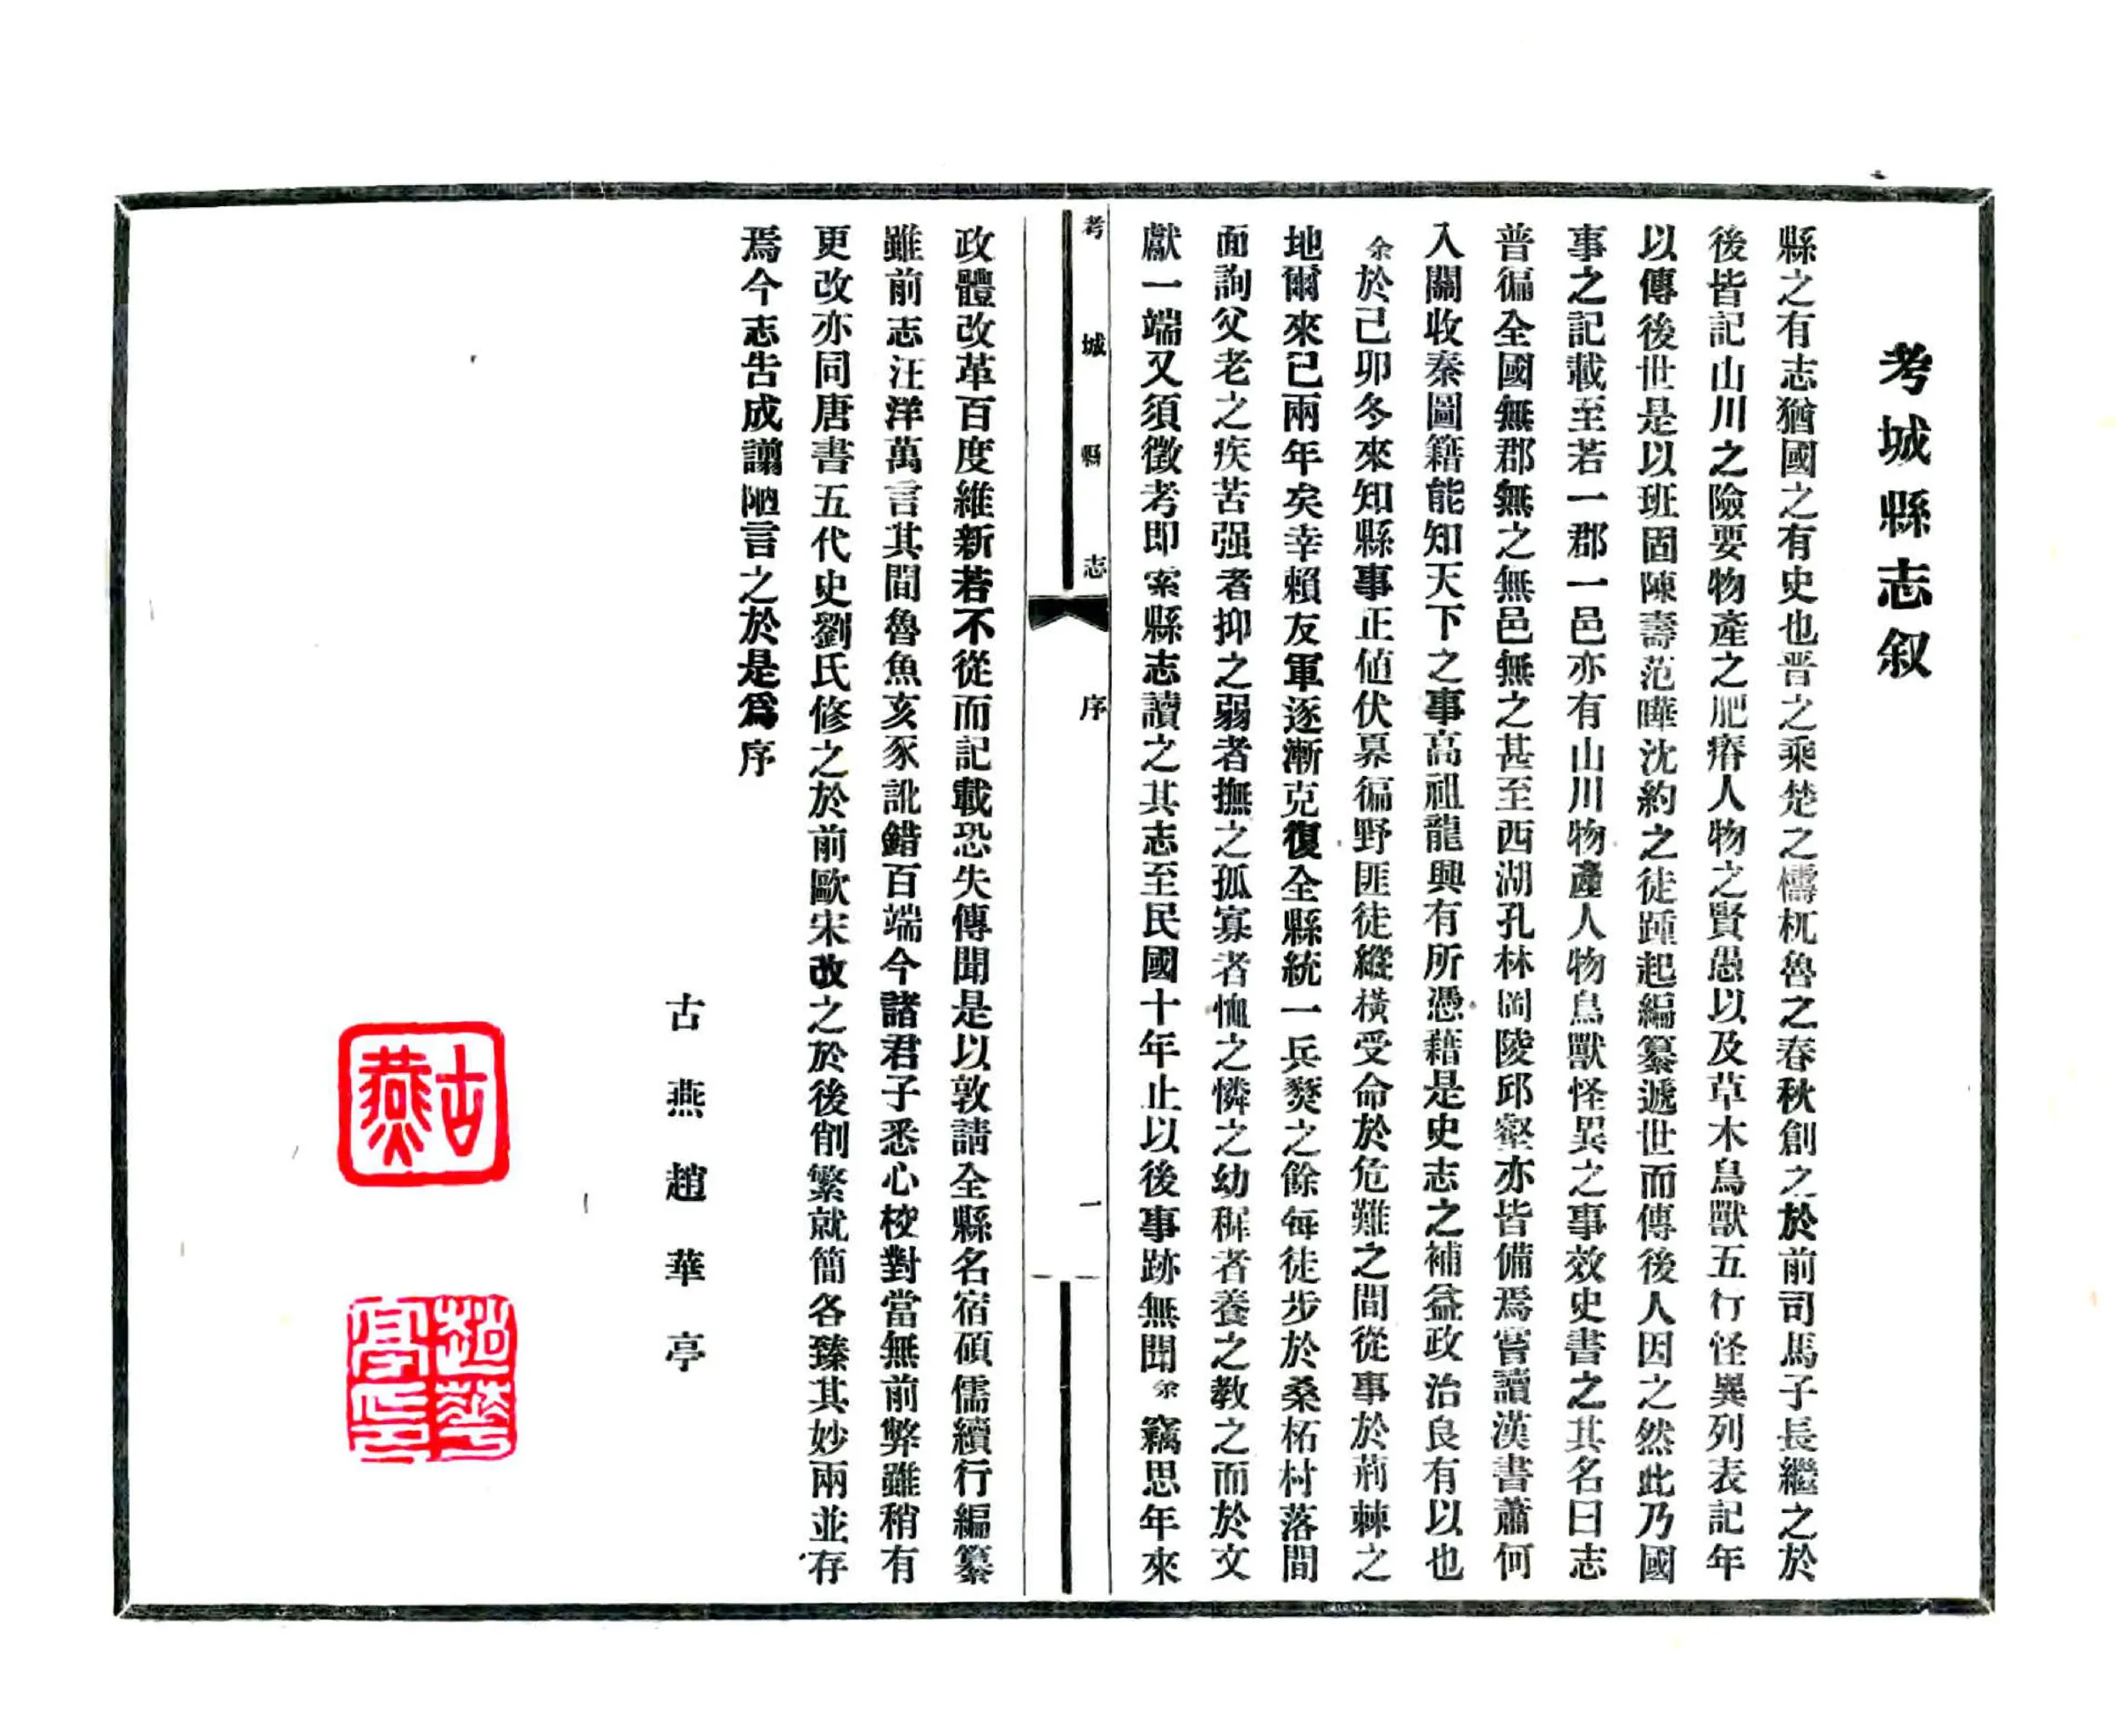 考城縣志叙
縣之有志猶國之有史也晋之乘楚之檮杌魯之春秋創之於前司馬子長繼之於
後皆記山川之險要物產之肥瘠人物之賢愚以及草木鳥獸五行怪異列表記年
以傳後世是以班固陳壽范曄沈約之徒踵起編纂遞世而傳後人因之然此乃國
事之記載至若一郡一邑亦有山川物產人物鳥獸怪異之事效史書之其名曰志
普徧全國無郡無之無邑無之甚至西湖孔林岡陵邱壑亦皆備焉嘗讀漢書蕭何
入關收秦圖籍能知天下之事高祖龍興有所憑藉是史志之補益政治良有以也
余於己卯冬來知縣事正値伏莽徧野匪徒縱橫受命於危難之間從事於荊棘之
地爾來已兩年矣幸賴友軍逐漸克復全縣統一兵燹之餘每徒步於桑柘村落間
面詢父老之疾苦强者抑之弱者撫之孤寡者恤之憐之幼穉者養之教之而於文
獻一端又須徵考即索縣志讀之其志至民國十年止以後事跡無聞余竊思年來
考城縣志
序
一
政體改革百度維新若不從而記載恐失傳聞是以敦請全縣名宿碩儒續行編纂
雖前志汪洋萬言其間魯魚亥豕訛錯百端今諸君子悉心校對當無前弊雖稍有
更改亦同唐書五代史劉氏修之於前歐宋改之於後削繁就簡各臻其妙兩並存
焉今志告成謭陋言之於是爲序
古燕趙華亭
古燕
趙華亭印